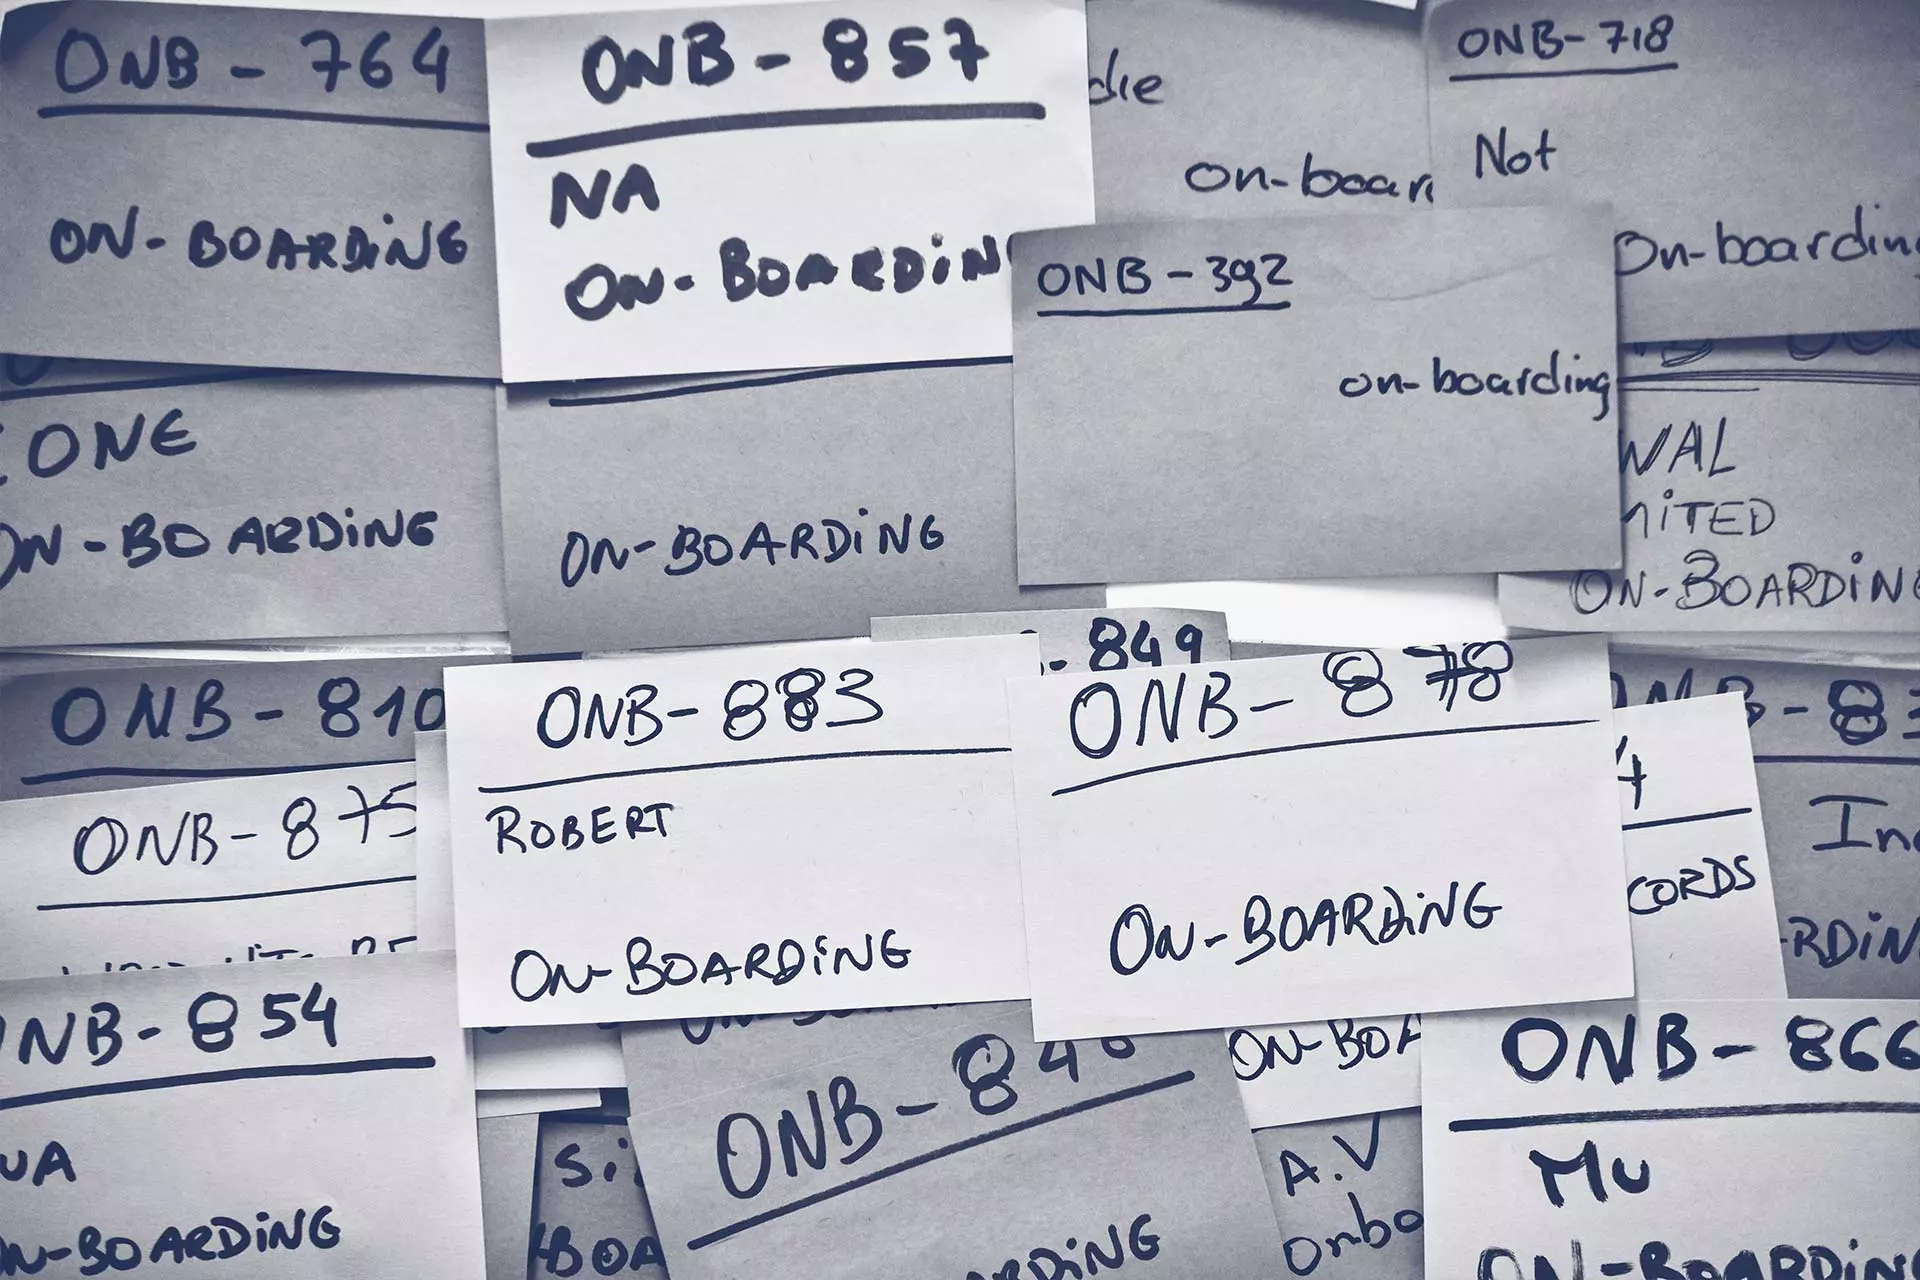 ONB - 764
ON-BOARDiNG
ONB - 857
NA
ON-BOARDiN
die
on-boar
ONB-718
Not
On-boardin
ONB-392
on-boarding
ONE
ON-BOARDiNG
ON-BOARDiNG
WAL
MiTED
ON-BOARDiNG
ONB-810
ONB-875
ONB-883
ROBERT
ON-BOARDiNG
- 849
ONB-878
ON-BOARDiNG
ONB-83
4
CORDS
In
RDiN
NB-854
NA
N-BOARDiNG
Si
BOA
ONB-84
RDiNG
ON-BOA
A.V
Onbo
ONB-866
Mu
ON-BOARDiN